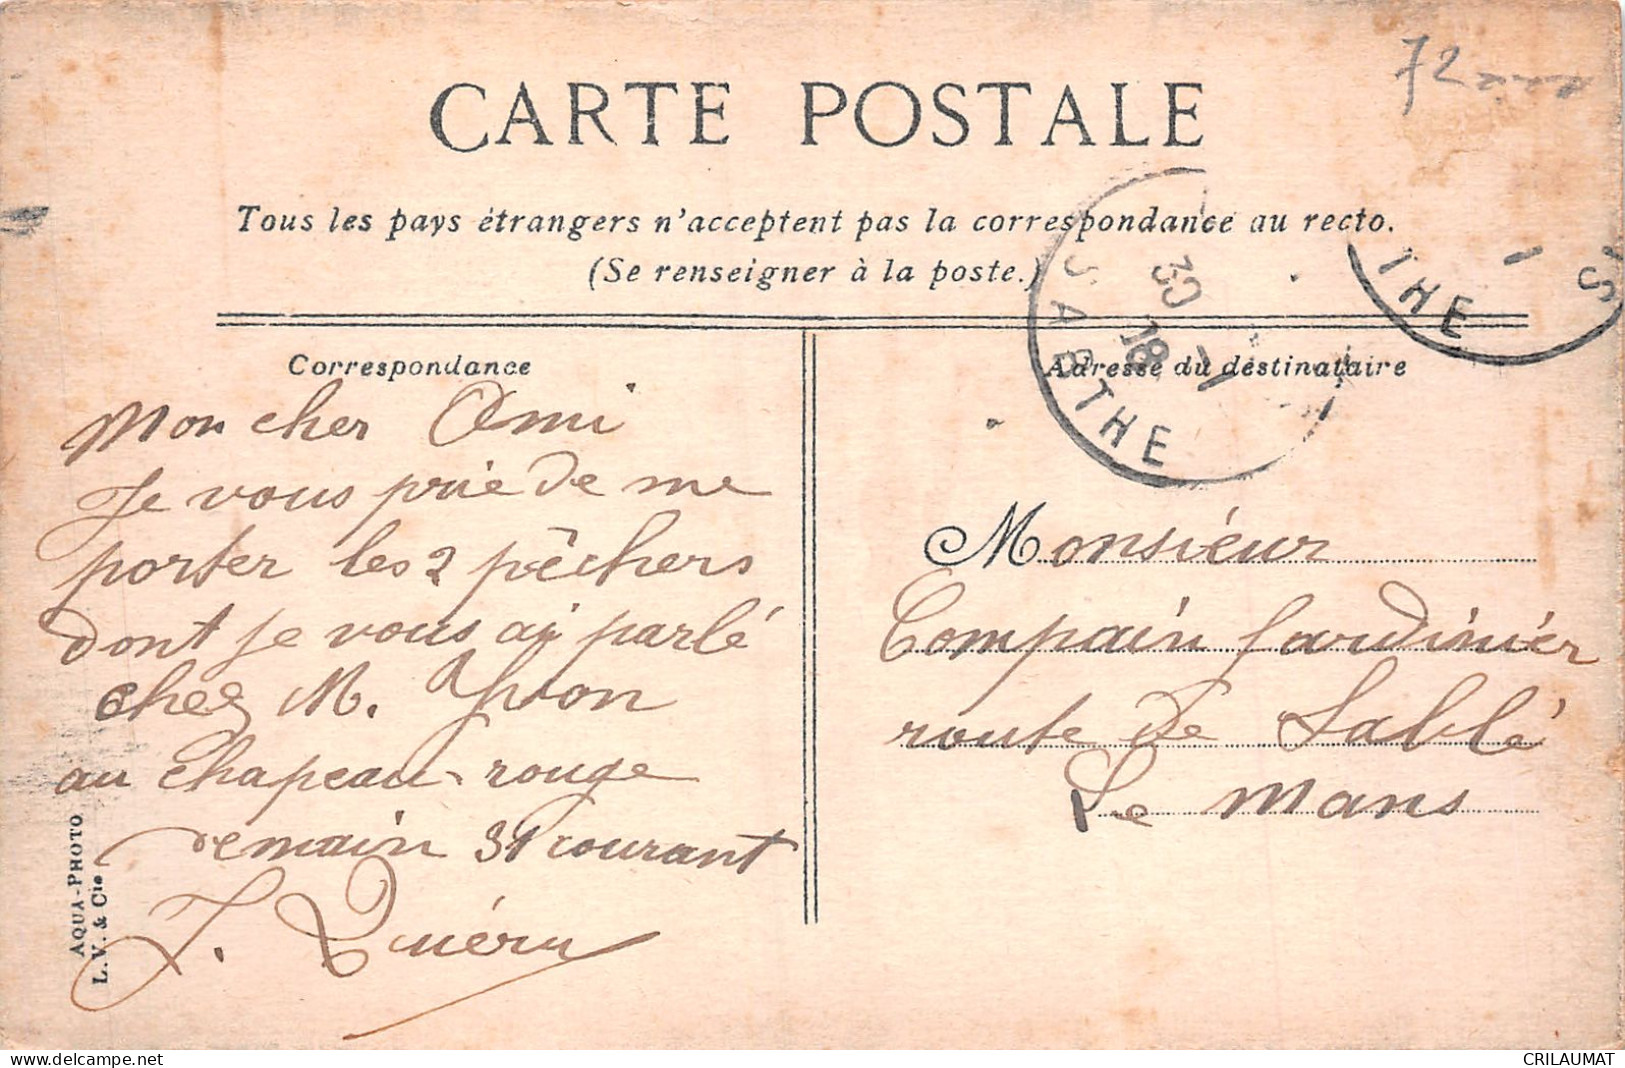 72
CARTE POSTALE
Tous les pays étrangers n'acceptent pas la correspondance au recto.
(Se renseigner à la poste.)
SARTHE
30 - 1
18
THE
1
S
Correspondance
Mon cher Ami
Je vous prie de me
porter les 2 pêchers
dont je vous ai parlé
chez M. Yvon
au chapeau-rouge
demain 31 courant
AQUA-PHOTO
L.V. & Cie
Adresse du destinataire
Monsieur
Compain Jardinier
route de Sablé
Le Mans
delcampe.net
CRILAUMAT